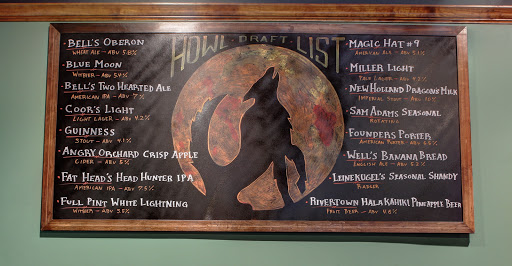 HOWL DRAFT LIST
BELL'S OBERON
WHEAT ALE - ABV 5.8%
BLUE MOON
WITBIER - ABV 5.4%
BELL'S TWO HEARTED ALE
AMERICAN IPA - ABV 7%
COOR'S LIGHT
LIGHT LAGER - ABV 4.2%
GUINNESS
STOUT - ABV 4.1%
ANGRY ORCHARD CRISP APPLE
CIDER - ABV 5%
FAT HEAD'S HEAD HUNTER IPA
AMERICAN IPA - ABV 7.5%
FULL PINT WHITE LIGHTNING
WITBIER - ABV 5.5%
MAGIC HAT #9
AMERICAN ALE - ABV 5.1%
MILLER LIGHT
PALE LAGER - ABV
NEW HOLLAND DRAGONS MILK
IMPERIAL STOUT - ABV 10%
SAM ADAMS SEASONAL
ROTATING
FOUNDERS PORTER
AMERICAN PORTER - ABV 6.5%
WELL'S BANANA BREAD
ENGLISH ALE - ABV 5.2%
LEINEKUGEL'S SEASONAL SHANDY
RADLER
RIVERTOWN HALA KAHIKI PINEAPPLE BEER
FRUIT BEER - ABV 4.8%